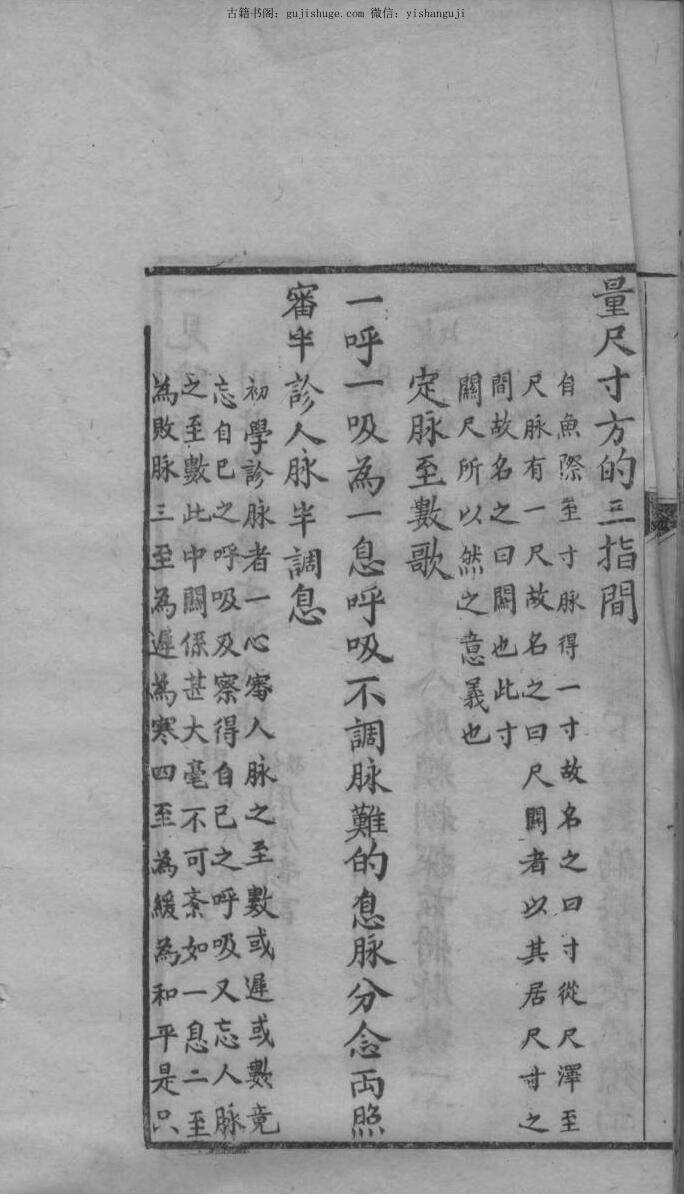 古籍书阁：gujishuge.com 微信：yishanguji
量尺寸方的三指間
自魚際至寸脉得一寸故名之曰寸從尺澤至
尺脉有一尺故名之曰尺關者以其居尺寸之
間故名之曰關也此寸
關尺所以然之意義也
定脉至數歌
一呼一吸為一息呼吸不調脉難的息脉分念両照
審半診人脉半調息
初學診脉者一心審人脉之至數或遲或數竟
忘自己之呼吸及察得自己之呼吸又忘人脉
之至數此中關係甚大毫不可紊如一息二至
為敗脉三至為遲為寒四至為緩為和平是只